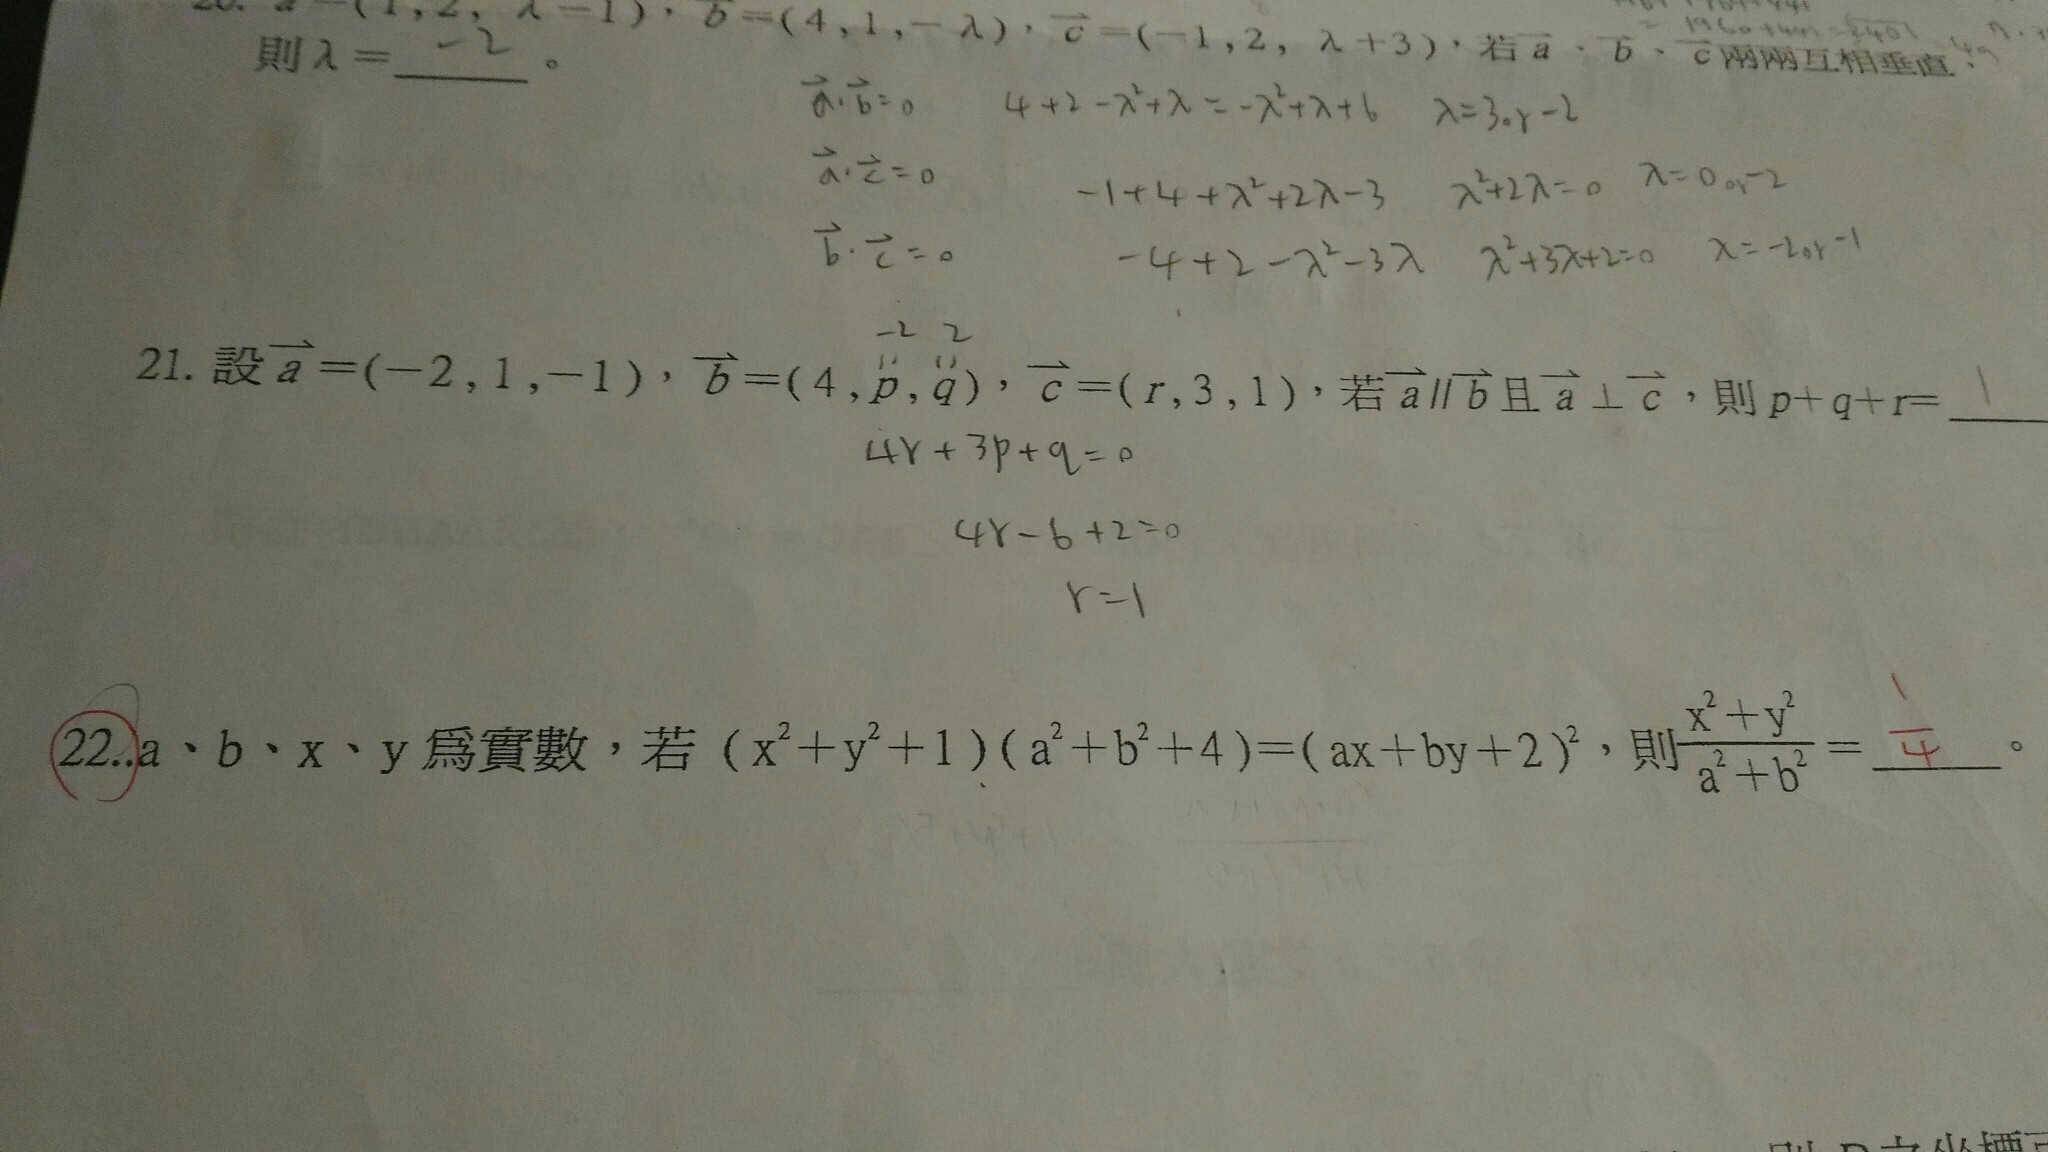 20. a=(1,2, λ-1), b=(4,1,-λ), c=(-1,2, λ+3),若a、b、c兩兩互相垂直,
則λ= -2 。
a·b=0 4+2-λ²+λ=-λ²+λ+6 λ=3or-2
a·c=0 -1+4+λ²+2λ-3 λ²+2λ=0 λ=0or-2
b·c=0 -4+2-λ²-3λ λ²+3λ+2=0 λ=-2or-1
-2 2
21. 設a=(-2,1,-1),b=(4,p,q),c=(r,3,1),若a//b且a⊥c,則p+q+r= 1
4r+3p+q=0
4r-6+2=0
r=1
22..a、b、x、y爲實數,若(x²+y²+1)(a²+b²+4)=(ax+by+2)²,則x²+y²/a²+b²= 1/4 。